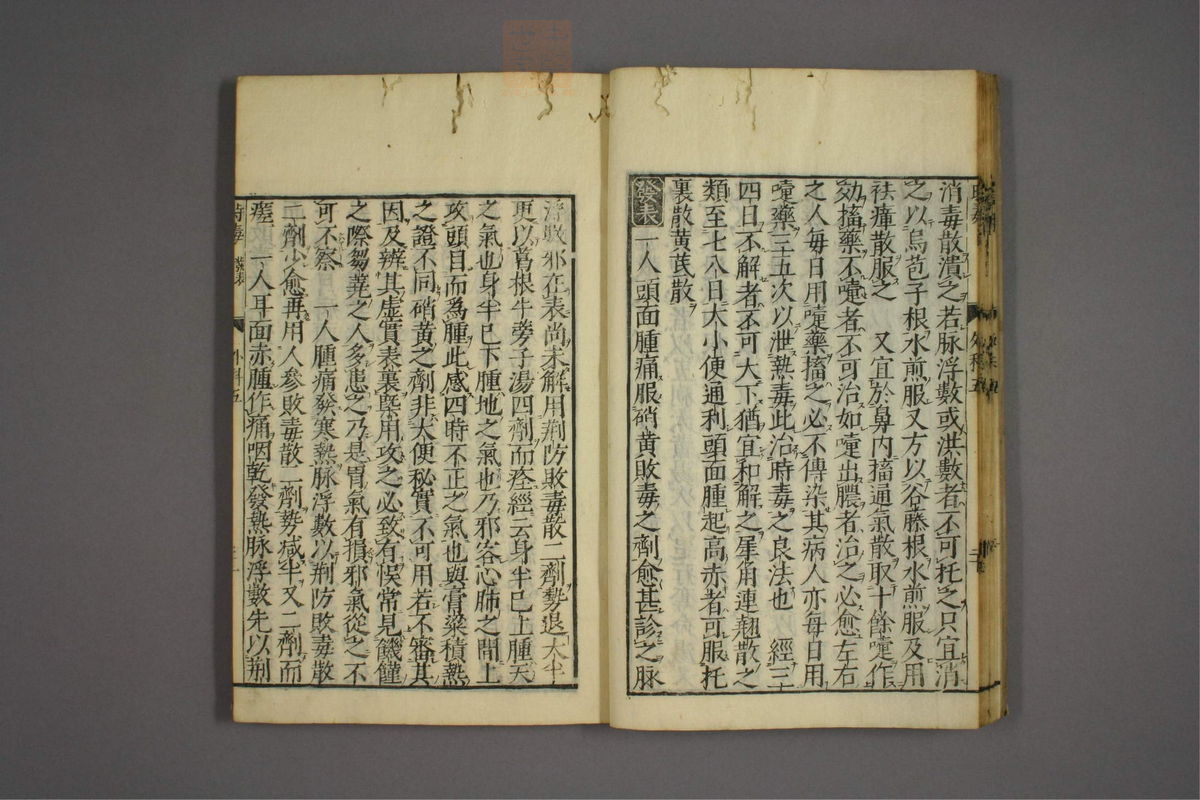 消毒散潰之若脉浮數或洪數者不可托之只宜消
之以烏苞子根水煎服又方以谷藤根水煎服及用
祛瘴散服之 又宜於鼻内搐通氣散取十餘嚔作
効搐藥不嚔者不可治如嚔出膿者治之必愈左右
之人毎日用嚔藥搐之必不傳染其病人亦毎日用
嚔藥三五次以泄熱毒此治時毒之良法也 經三
四日不解者不可大下猶宜和解之犀角連翹散之
類至七八日大小便通利頭面腫起高赤者可服托
裏散黄芪散
發表 一人頭面腫痛服硝黄敗毒之劑愈甚診之脉
浮數邪在表尚未解用荆防敗毒散二劑勢退大半
更以葛根牛蒡子湯四劑而痊經云身半已上腫天
之氣也身半已下腫地之氣也乃邪客心肺之間上
攻頭目而為腫此感四時不正之氣也與膏粱積熱
之證不同硝黄之劑非大便秘實不可用若不審其
因及辨其虚實表裏槩用攻之必致有悮常見饑饉
之際芻蕘之人多患之乃是胃氣有損邪氣從之不
可不察 一人腫痛發寒熱脉浮數以荆防敗毒散
二劑少愈再用人參敗毒散二劑勢减半又二劑而
瘥 一人耳面赤腫作痛咽乾發熱脉浮數先以荆
時毒 發表 外科五